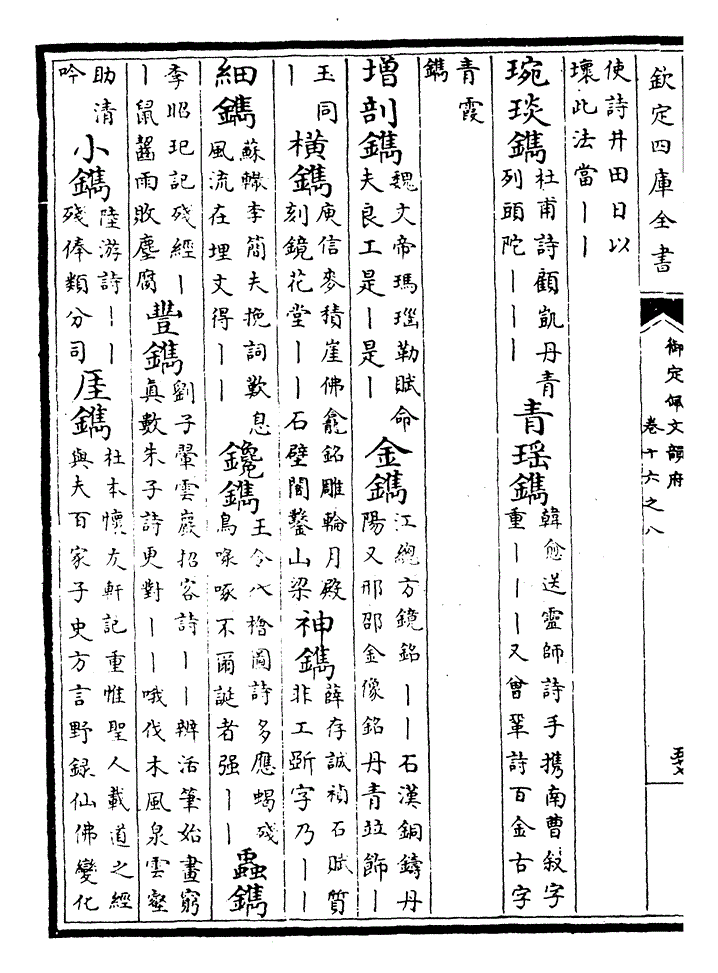 欽定四庫全書
御定佩文韻府
卷十六之八
使詩井田日以
壞此法當丨丨
琬琰鐫
杜甫詩顧凱丹青
列頭陀丨丨丨
青瑶鐫
韓愈送靈師詩手携南曹敘字
重丨丨丨又曾鞏詩百金古字
青霞
鐫
增剖鐫
魏文帝瑪瑙勒賦命
夫良工是丨是丨
金鐫
江總方鏡銘丨丨石漢銅鑄丹
陽又邢邵金像銘丹青竝飾丨
玉同
丨
横鐫
庾信麥積崖佛龕銘雕輪月殿
刻鏡花堂丨丨石壁闇鑿山梁
神鐫
薛存誠禎石賦質
非工斲字乃丨丨
細鐫
蘇轍李簡夫挽詞歎息
風流在埋文得丨丨
鑱鐫
王令八檜圖詩多應蝎殘
鳥喙啄不爾誕者强丨丨
蟲鐫
李昭玘記殘經丨
丨鼠齧雨敗塵腐
豐鐫
劉子翬雲巖招客詩丨丨辨活筆始畫窮
真數朱子詩更對丨丨哦伐木風泉雲壑
助清
吟
小鐫
陸游詩丨丨
殘俸類分司
厓鐫
杜本懷友軒記重惟聖人載道之經
與夫百家子史方言野録仙佛變化